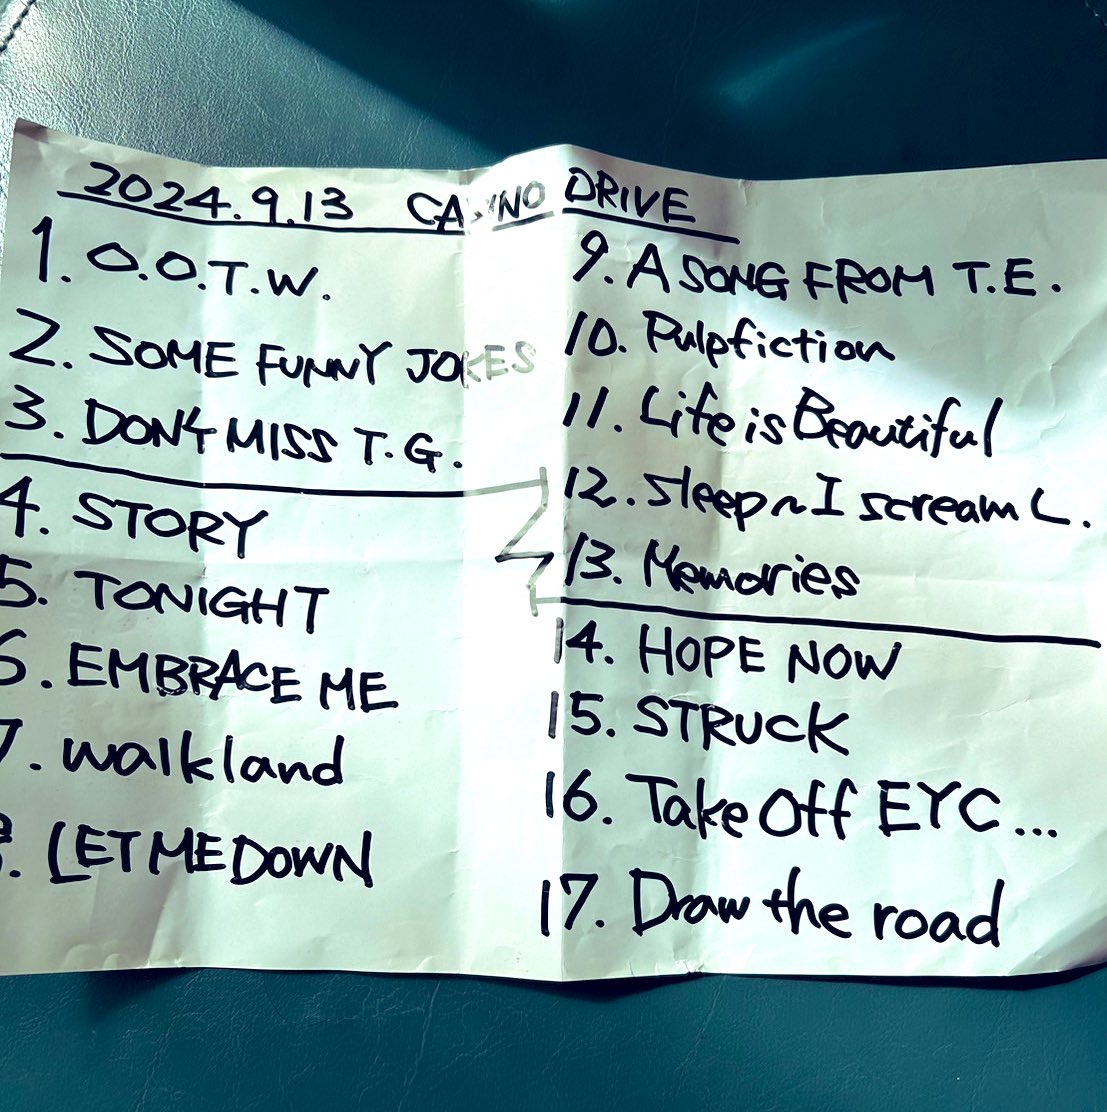 2024.9.13 CASINO DRIVE
1. O.O.T.W.
2. SOME FUNNY JOKES
3. DON'T MISS T.G.
4. STORY
5. TONIGHT
6. EMBRACE ME
7. walk land
8. LET ME DOWN
9. A SONG FROM T.E.
10. Pulpfiction
11. Life is Beautiful
12. Sleep~I scream L.
13. Memories
14. HOPE NOW
15. STRUCK
16. Take Off EYC...
17. Draw the road